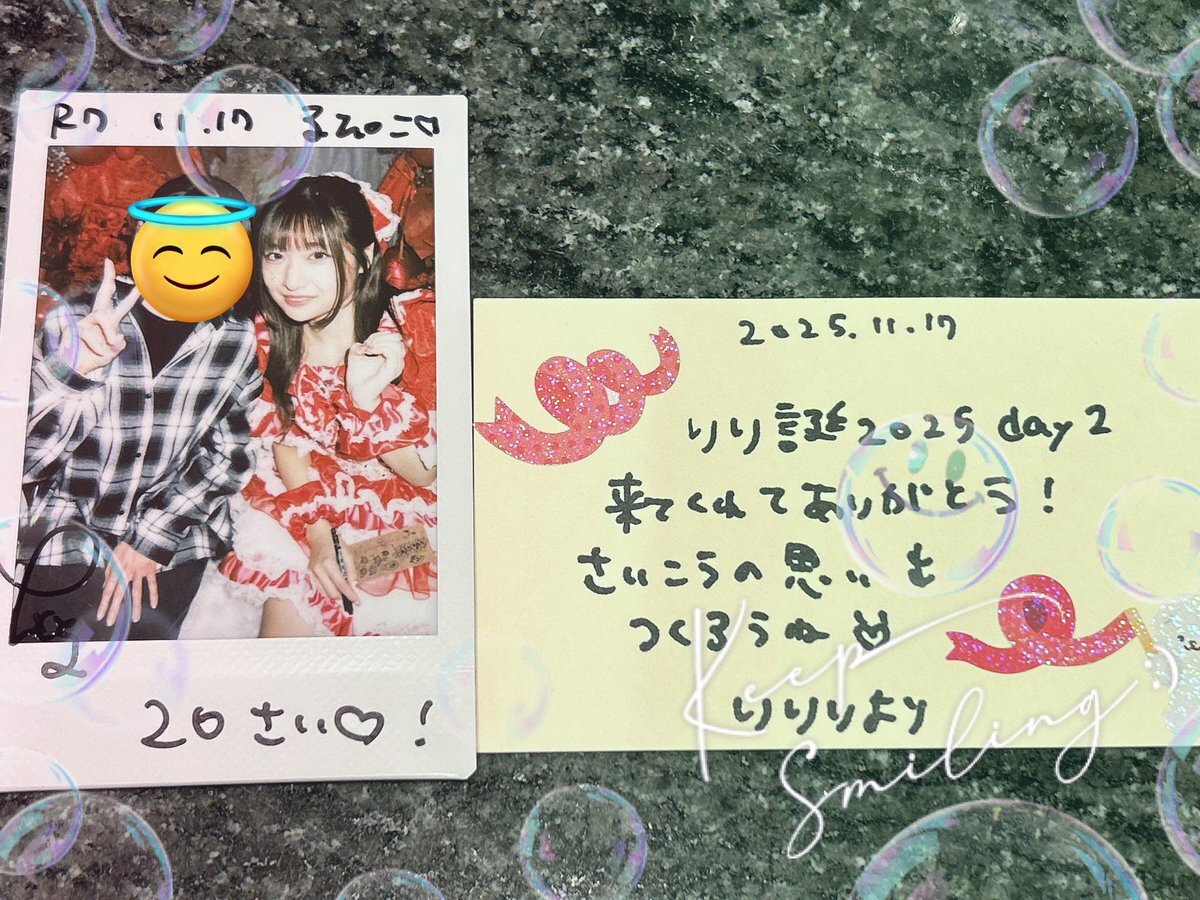 R7 11.17
20さい♡!
2025.11.17
りり誕2025 day2
来てくれてありがとう!
さいこうの思い出
つくろうね♡
りりりより
Keep
Smiling :)